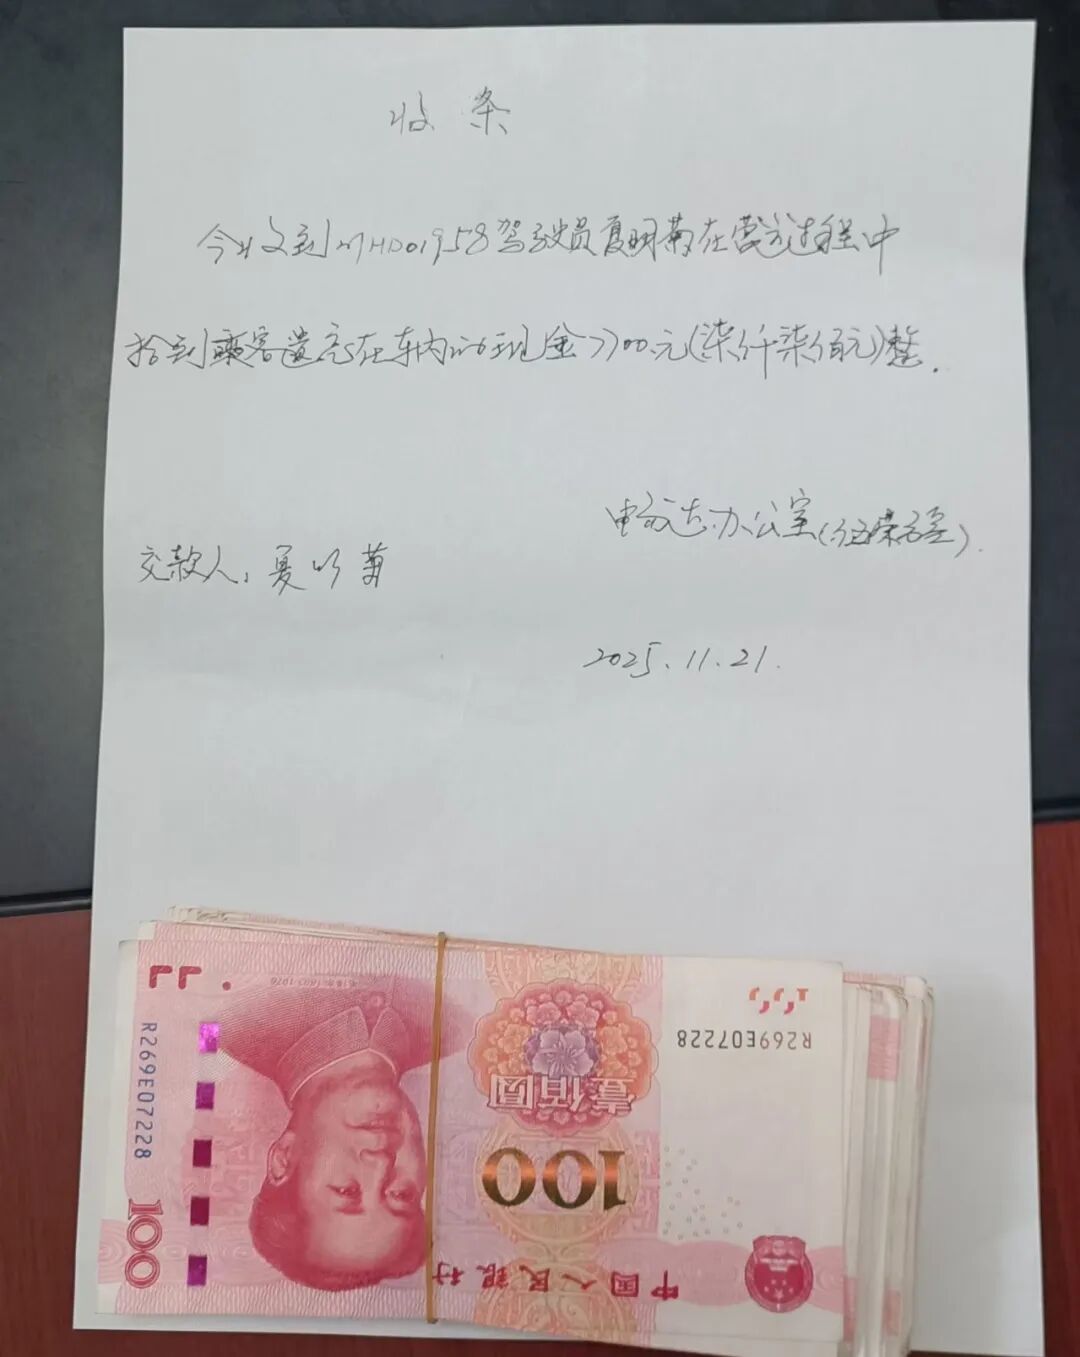 收条
今收到川HD01958驾驶员夏明菊在营运过程中
拾到乘客遗忘在车内的现金7700.元(柒仟柒佰元)整.
畅达办公室
交款人: 夏明菊
2025.11.21.
R269E07228
R269E07228
壹佰圆
100
100
中国人民银行